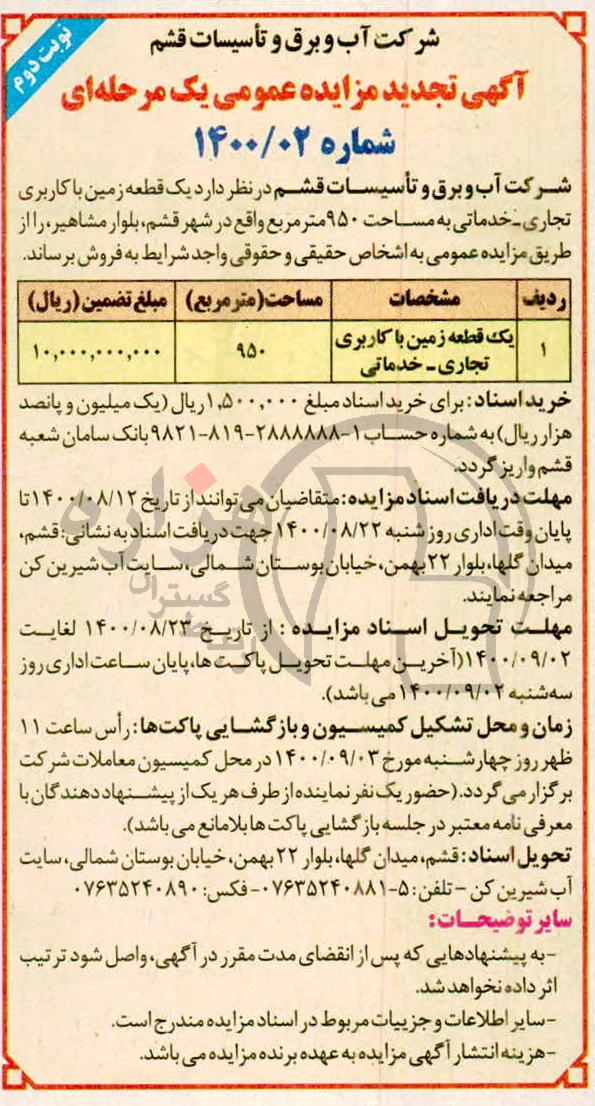 نوبت دوم
شرکت آب و برق و تأسیسات قشم
آگهی تجدید مزایده عمومی یک مرحله‌ای
شماره ۱۴۰۰/۰۲
شرکت آب و برق و تأسیسات قشم در نظر دارد یک قطعه زمین با کاربری
تجاری-خدماتی به مساحت ۹۵۰ متر مربع واقع در شهر قشم، بلوار مشاهیر، را از
طریق مزایده عمومی به اشخاص حقیقی و حقوقی واجد شرایط به فروش برساند.
ردیف مشخصات مساحت (متر مربع) مبلغ تضمین (ریال)
۱ یک قطعه زمین با کاربری تجاری - خدماتی ۹۵۰ ۱۰,۰۰۰,۰۰۰,۰۰۰
خرید اسناد: برای خرید اسناد مبلغ ۱,۵۰۰,۰۰۰ ریال (یک میلیون و پانصد
هزار ریال) به شماره حساب ۱-۲۸۸۸۸۸۸-۸۱۹-۹۸۲۱ بانک سامان شعبه
قشم واریز گردد.
مهلت دریافت اسناد مزایده: متقاضیان می‌توانند از تاریخ ۱۴۰۰/۰۸/۱۲ تا
پایان وقت اداری روز شنبه ۱۴۰۰/۰۸/۲۲ جهت دریافت اسناد به نشانی: قشم،
میدان گلها، بلوار ۲۲ بهمن، خیابان بوستان شمالی، سایت آب شیرین کن
مراجعه نمایند.
مهلت تحویل اسناد مزایده: از تاریخ ۱۴۰۰/۰۸/۲۳ لغایت
۱۴۰۰/۰۹/۰۲ (آخرین مهلت تحویل پاکت‌ها، پایان ساعت اداری روز
سه‌شنبه ۱۴۰۰/۰۹/۰۲ می باشد).
زمان و محل تشکیل کمیسیون و بازگشایی پاکت‌ها: رأس ساعت ۱۱
ظهر روز چهارشنبه مورخ ۱۴۰۰/۰۹/۰۳ در محل کمیسیون معاملات شرکت
برگزار می گردد. (حضور یک نفر نماینده از طرف هر یک از پیشنهاد دهندگان با
معرفی نامه معتبر در جلسه بازگشایی پاکت ها بلامانع می باشد).
تحویل اسناد: قشم، میدان گلها، بلوار ۲۲ بهمن، خیابان بوستان شمالی، سایت
آب شیرین کن - تلفن: ۵-۰۷۶۳۵۲۴۰۸۸۱ - فکس: ۰۷۶۳۵۲۴۰۸۹۰
سایر توضیحات:
-به پیشنهادهایی که پس از انقضای مدت مقرر در آگهی، واصل شود ترتیب
اثر داده نخواهد شد.
-سایر اطلاعات و جزییات مربوط در اسناد مزایده مندرج است.
-هزینه انتشار آگهی مزایده به عهده برنده مزایده می باشد.